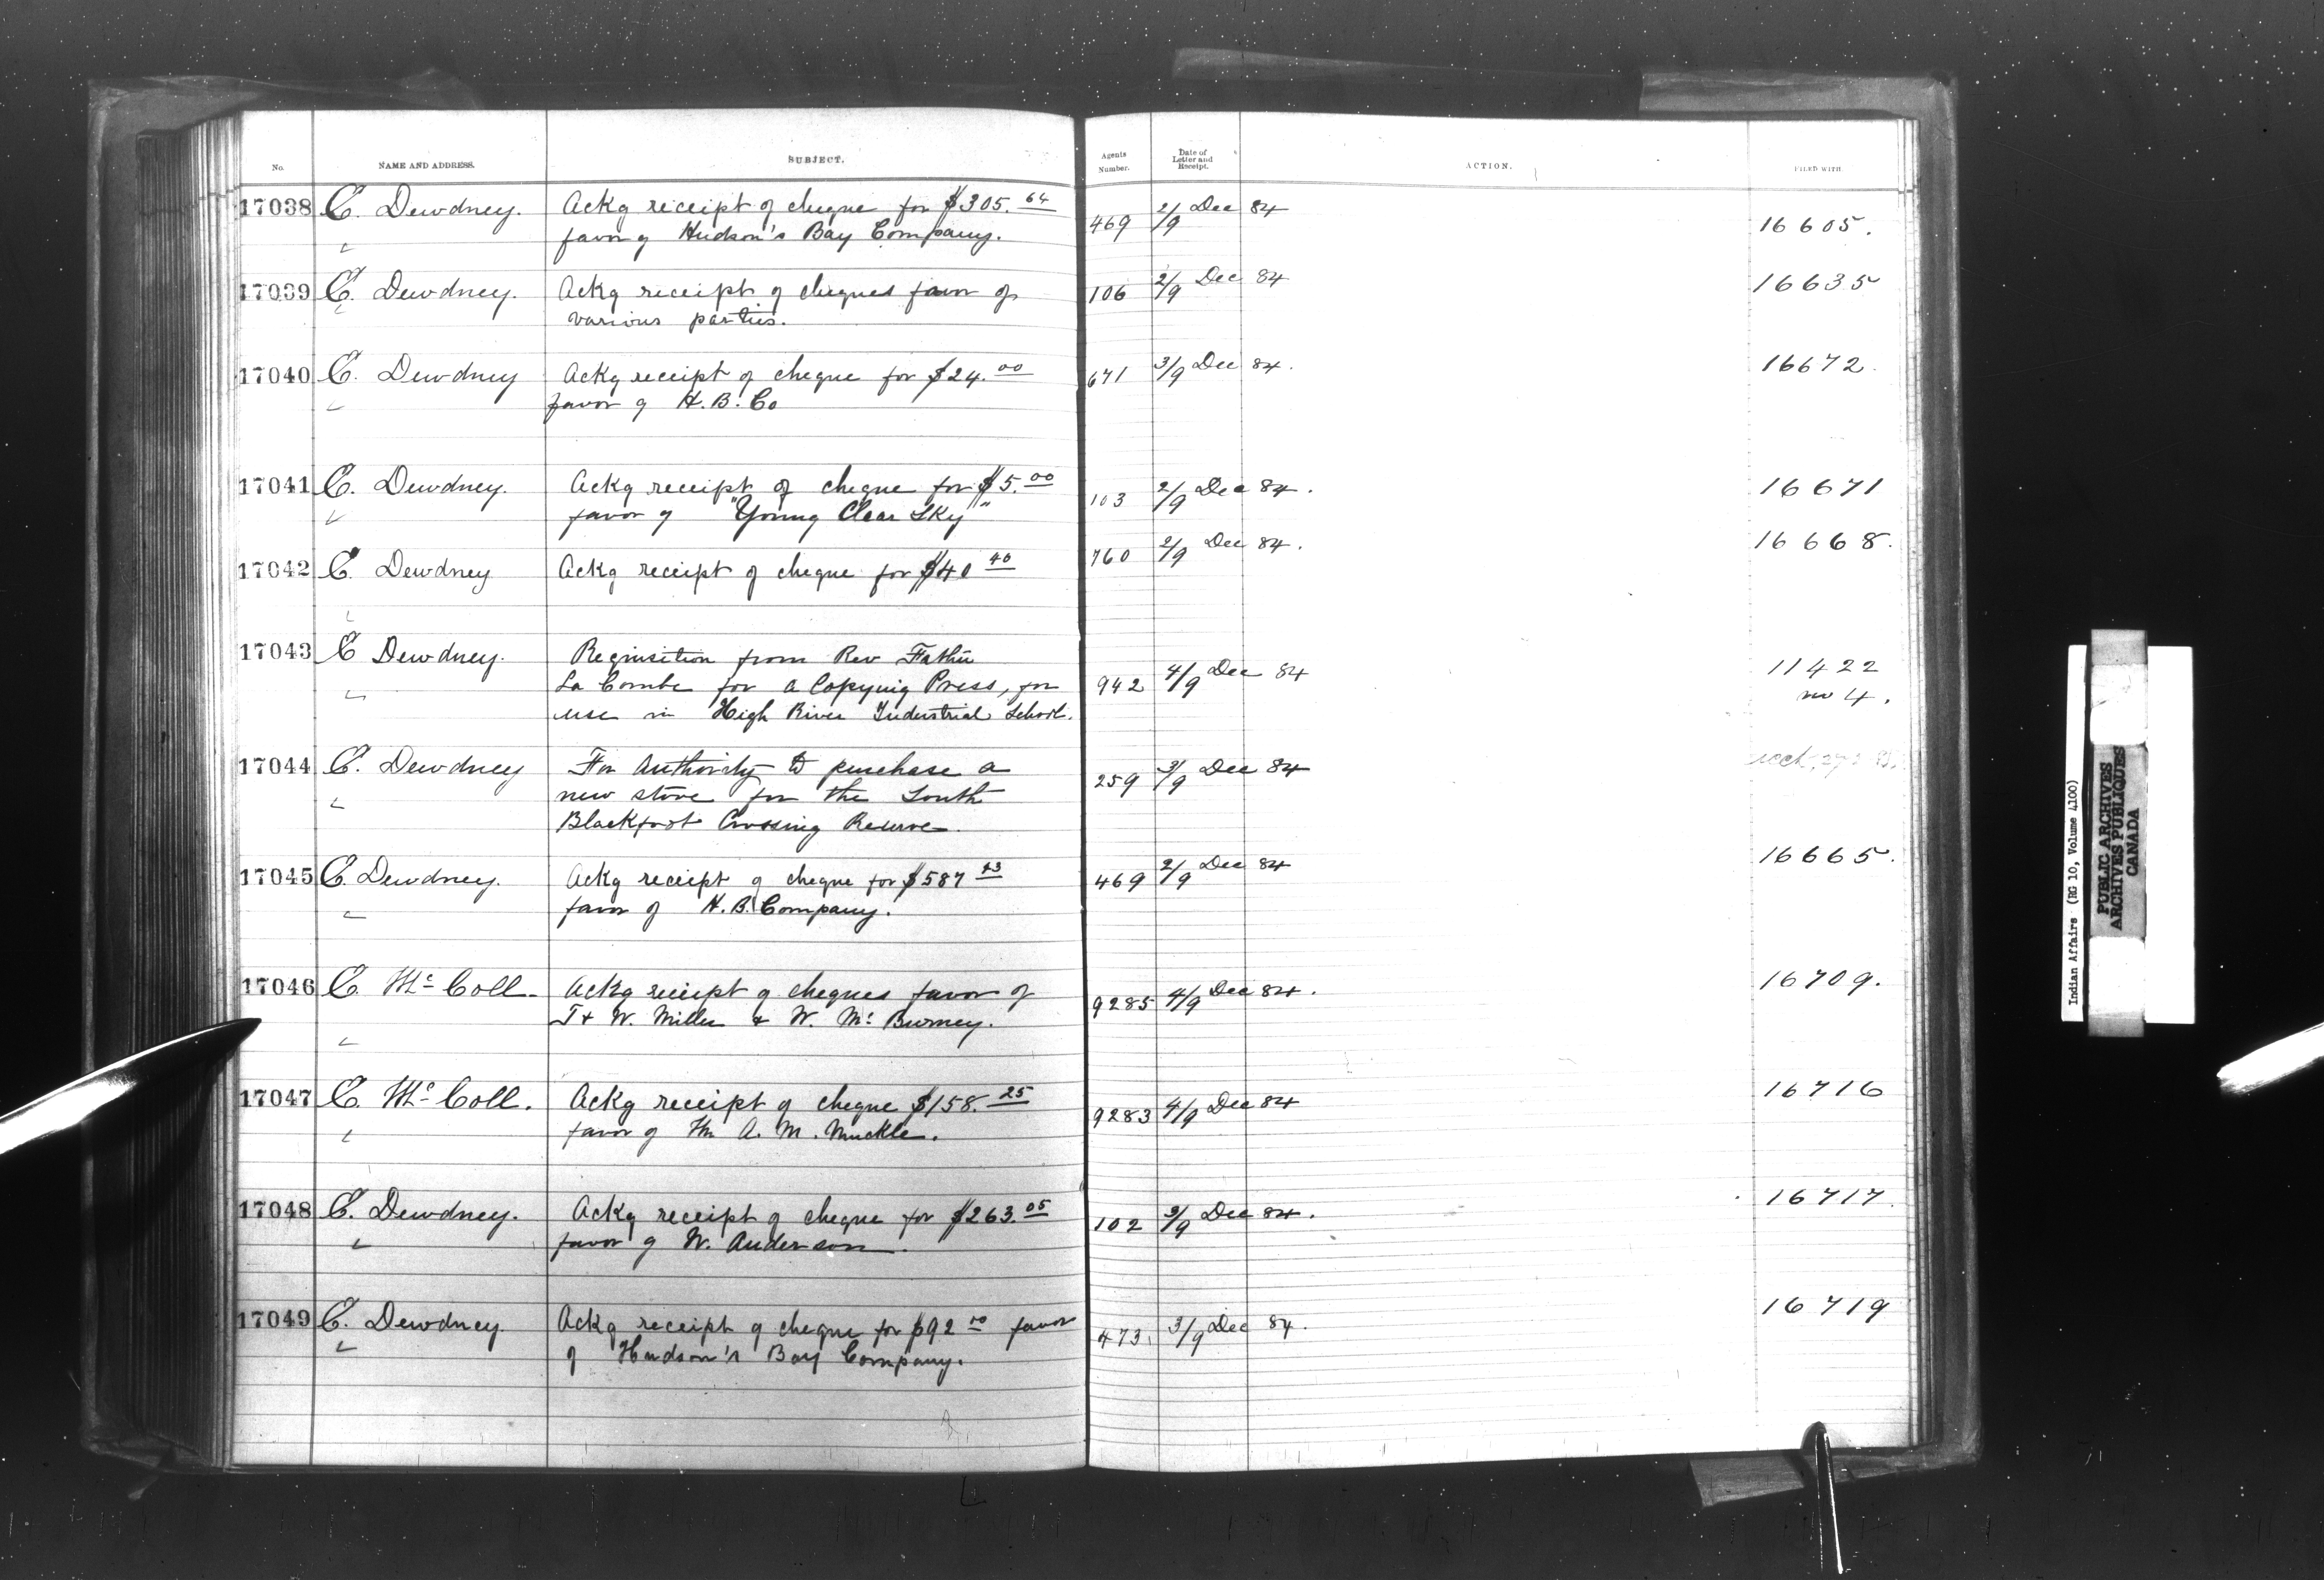 No. NAME AND ADDRESS. SUBJECT. Agents Number. Date of Letter and Receipt. ACTION. FILED WITH
17038 E. Dewdney. Ackg receipt of cheque for $305.64 469 2/9 Dec 84 16605.
" favor of Hudson's Bay Company.
17039 E. Dewdney. Ackg receipt of cheques favor of 106 2/9 Dec 84 16635
" various parties.
17040 E. Dewdney Ackg receipt of cheque for $24.00 671 3/9 Dec 84. 16672.
" favor of H. B. Co
17041 E. Dewdney. Ackg receipt of cheque for $5.00 103 2/9 Dec 84. 16671
" favor of "Young Clear Sky"
17042 E. Dewdney Ackg receipt of cheque for $40 40 760 2/9 Dec 84. 16668.
"
17043 E Dewdney. Requisition from Rev Father 942 4/9 Dec 84 11422
" La Combe for a Copying Press, for no 4.
use in High River Industrial School.
17044 E. Dewdney For Authority to purchase a 259 3/9 Dec 84
" new stove for the South
Blackfoot Crossing Reserve.
17045 E. Dewdney. Ackg receipt of cheque for $587 469 2/9 Dec 84 16665.
" favor of H. B. Company.
17046 E. McColl. Ackg receipt of cheques favor of 9285 4/9 Dec 84. 16709.
" J & W. Miller & W. McBurney.
17047 E. McColl. Ackg receipt of cheque $158.25 9283 4/9 Dec 84 16716
" favor of A. M. Muckle.
17048 E. Dewdney. Ackg receipt of cheque for $263.05 102 3/9 Dec 84. 16717.
" favor of W. Anderson.
17049 E. Dewdney. Ackg receipt of cheque for $92 00 favor 473. 3/9 Dec 84. 16719
" of Hudson's Bay Company.
Indian Affairs (RG 10, Volume 4100)
PUBLIC ARCHIVES
ARCHIVES PUBLIQUES
CANADA